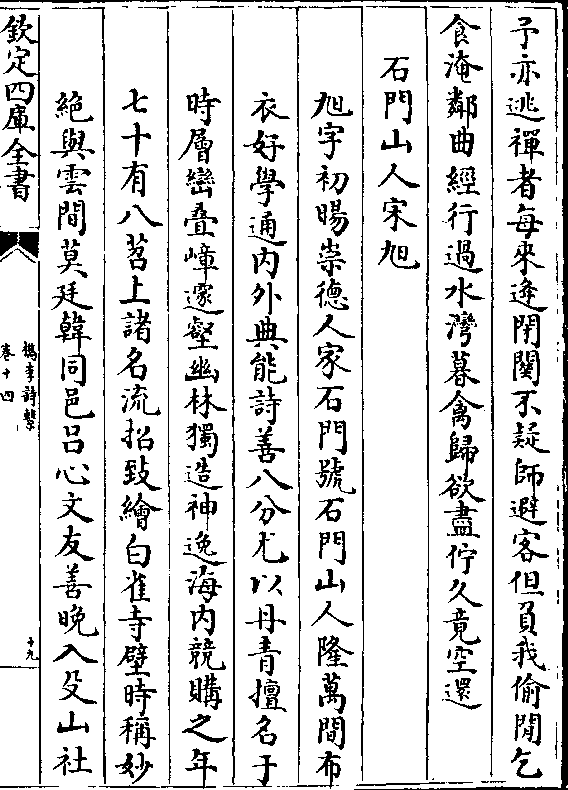 予亦逃禪者每來逢閉關不疑師避客但負我偷閒乞
食淹鄰曲經行過水灣暮禽歸欲盡佇久竟空還
石門山人宋旭
旭字初暘崇德人家石門號石門山人隆萬間布
衣好學通內外典能詩善八分尤以丹青擅名于
時層巒叠嶂邃壑幽林獨造神逸海內競購之年
七十有八苕上諸名流招致繪白雀寺壁時稱妙
絕與雲間莫廷韓同邑呂心文友善晚入殳山社
欽定四庫全書
檇李詩繫
卷十四
十九